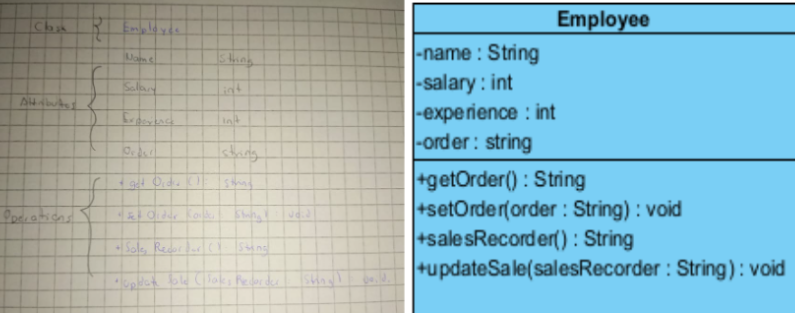 Class { Employee
Name String
Salary int
Attributes {
Experience int
Order string
+ get Order (): string
Operations {
+ set Order (order String) void
+ Sales Recorder () String
+ update Sale (Sales Recorder String) void
Employee
-name : String
-salary : int
-experience : int
-order : string
+getOrder() : String
+setOrder(order : String) : void
+salesRecorder() : String
+updateSale(salesRecorder : String) : void